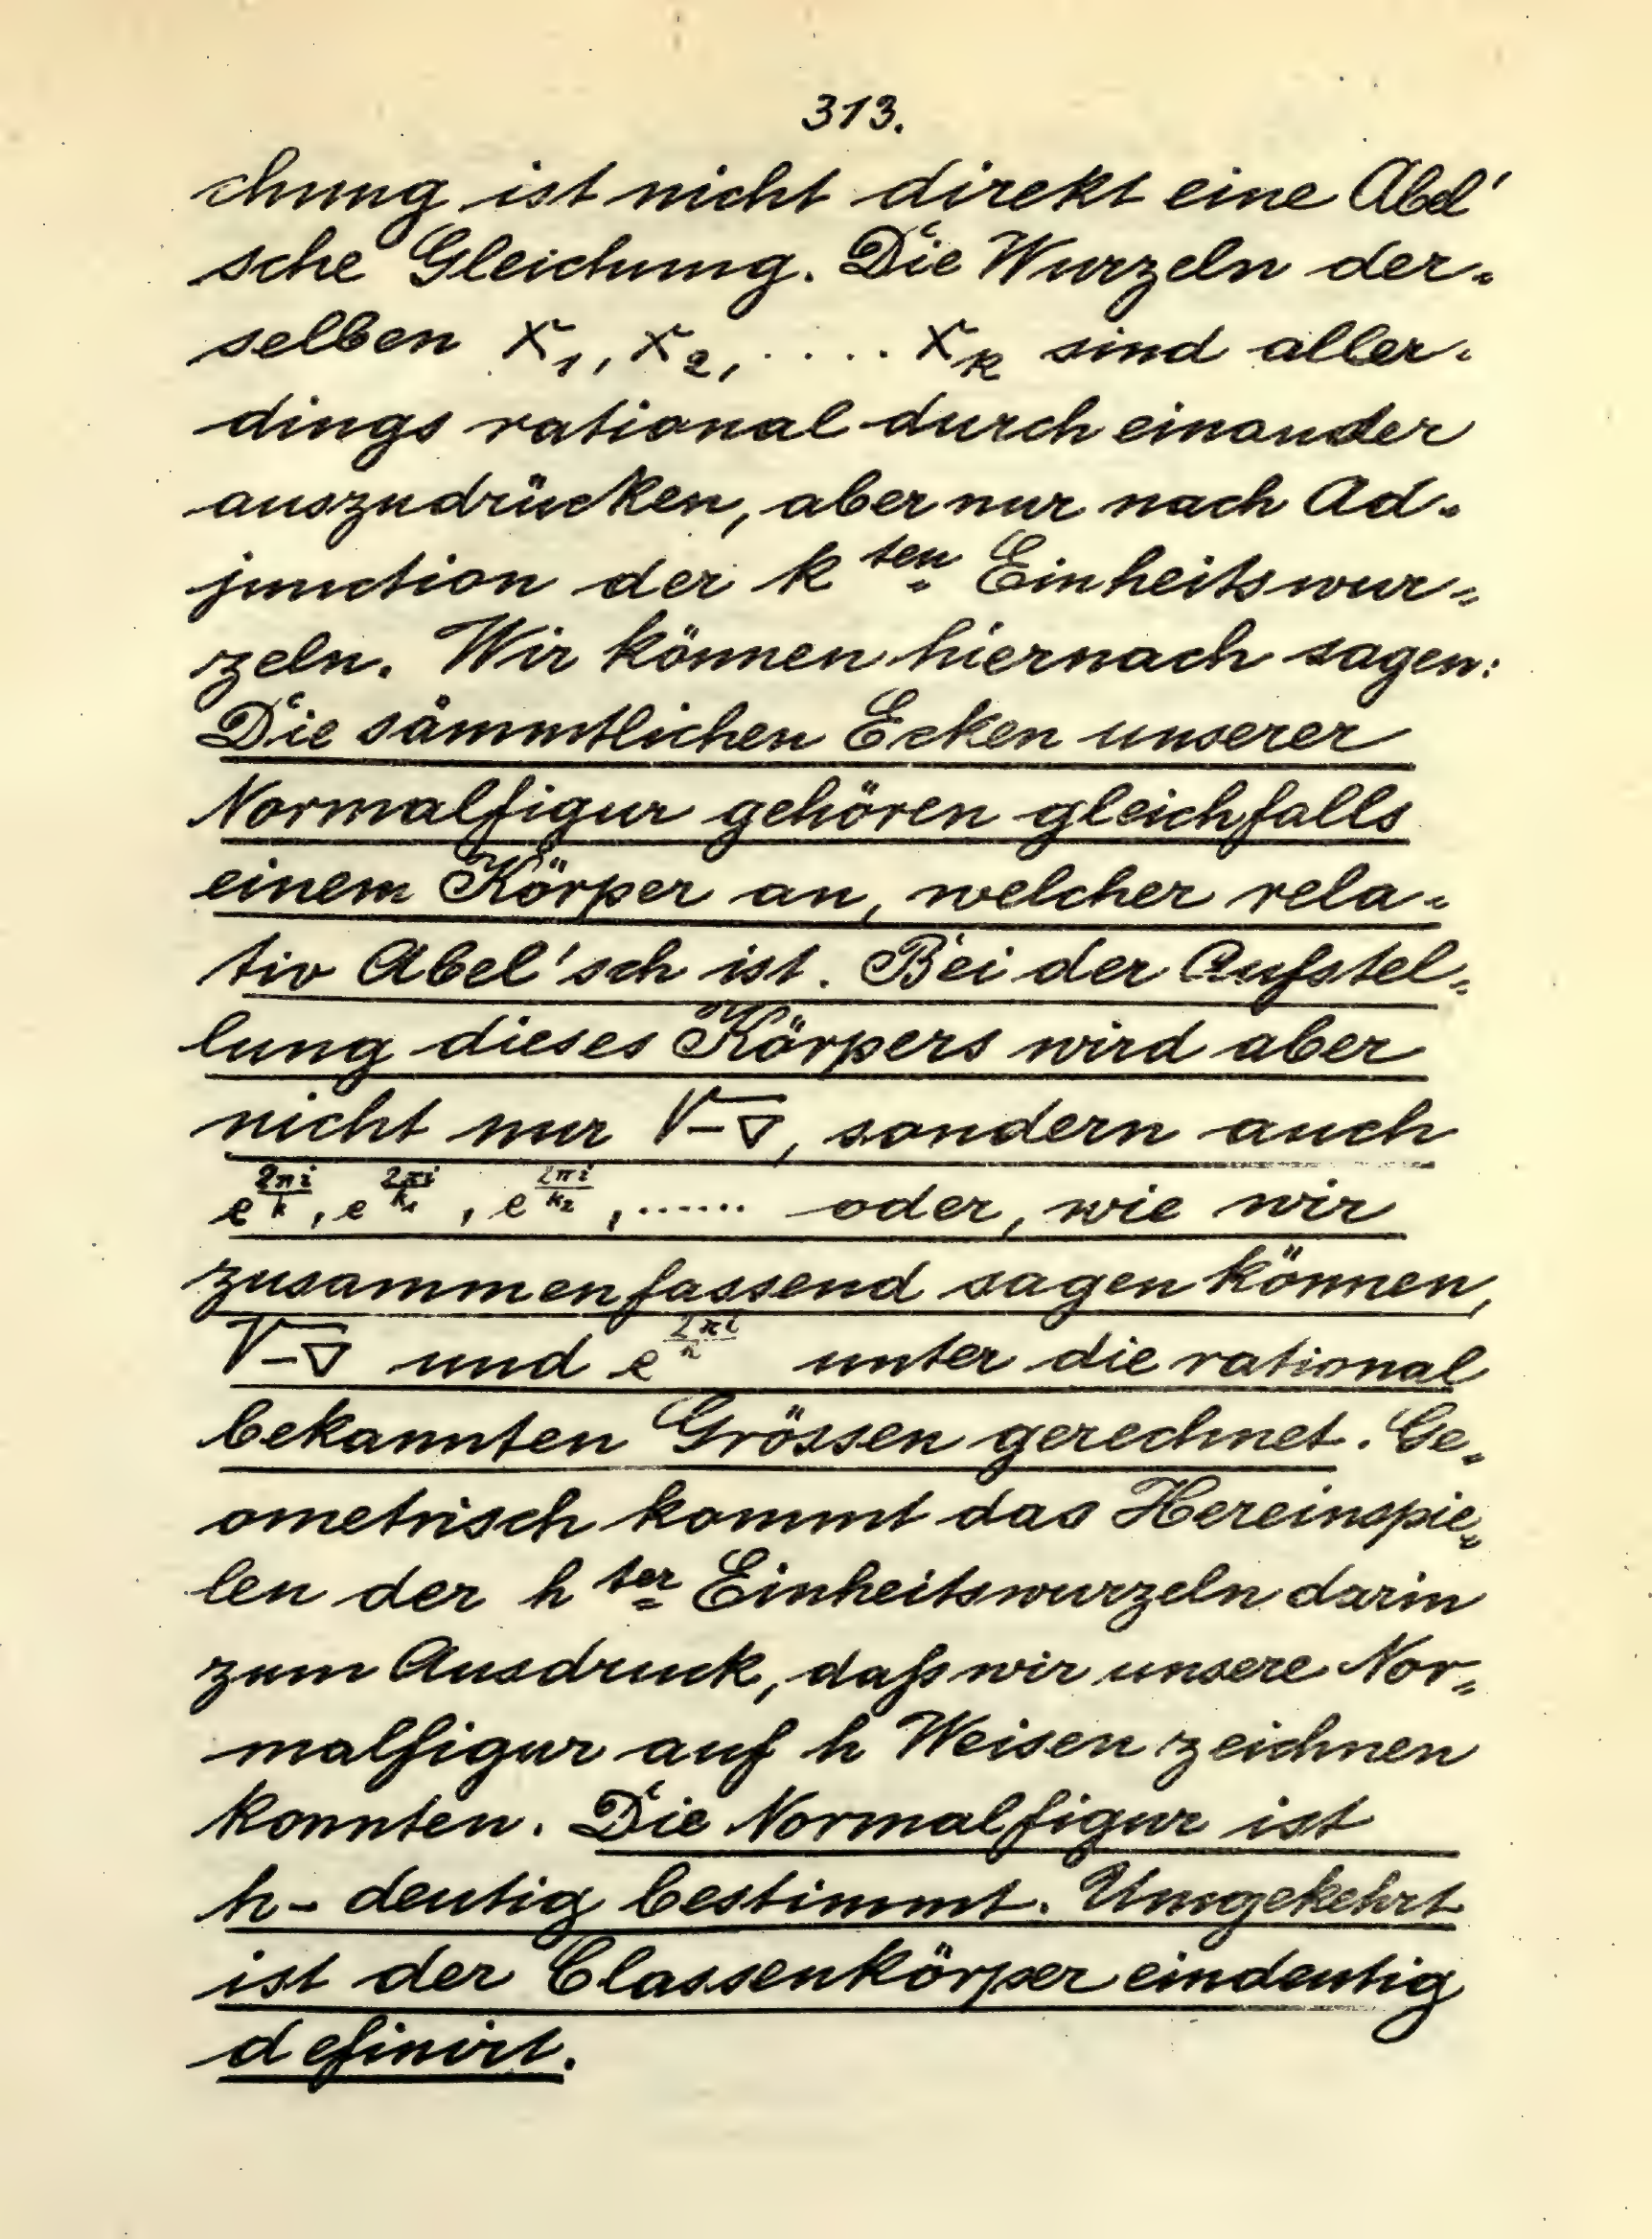 313.
chung ist nicht direkt eine Abel'
sche Gleichung. Die Wurzeln der=
selben x₁, x₂, ..... xₖ sind aller=
dings rational durch einander
auszudrücken, aber nur nach Ad=
junction der k ten Einheitswur=
zeln. Wir können hiernach sagen:
Die sämmtlichen Ecken unserer
Normalfigur gehören gleichfalls
einem Körper an, welcher rela=
tiv Abel'sch ist. Bei der Aufstel=
lung dieses Körpers wird aber
nicht nur √-∇, sondern auch
e^{2πi/k}, e^{2πi/k₁}, e^{2πi/k₂}, ...... oder, wie wir
zusammenfassend sagen können,
√-∇ und e^{2πi/h} unter die rational
bekannten Grössen gerechnet. Ge=
ometrisch kommt das Hereinspie=
len der h ter Einheitswurzeln darin
zum Ausdruck, daß wir unsere Nor=
malfigur auf h Weisen zeichnen
konnten. Die Normalfigur ist
h-deutig bestimmt. Umgekehrt
ist der Classenkörper eindeutig
definirt.